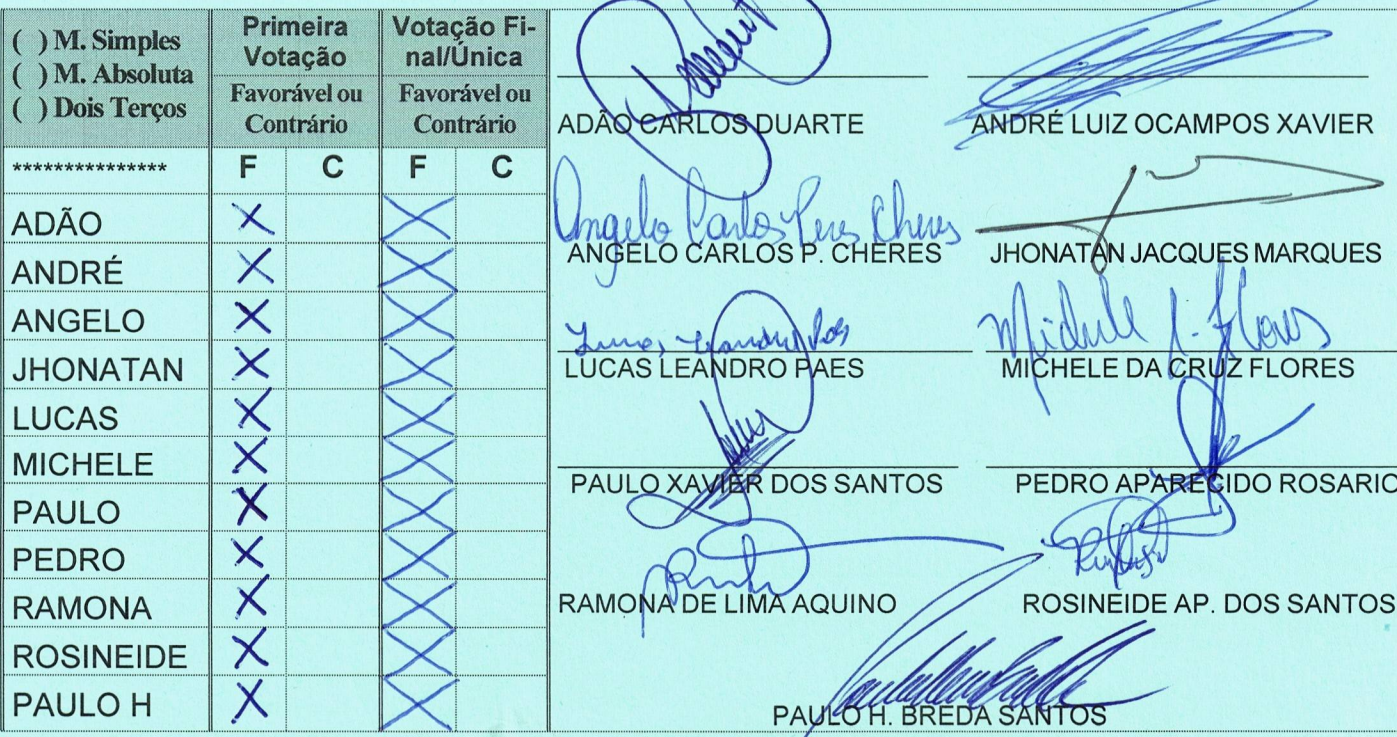 ( ) M. Simples
( ) M. Absoluta
( ) Dois Terços
Primeira
Votação
Favorável ou
Contrário
Votação Fi-
nal/Única
Favorável ou
Contrário
*************** F C F C
ADÃO X X
ANDRÉ X X
ANGELO X X
JHONATAN X X
LUCAS X X
MICHELE X X
PAULO X X
PEDRO X X
RAMONA X X
ROSINEIDE X X
PAULO H X X
ADÃO CARLOS DUARTE
ANDRÉ LUIZ OCAMPOS XAVIER
Angelo Carlos Peres Cheres
ANGELO CARLOS P. CHERES
JHONATAN JACQUES MARQUES
Lucas Leandro Paes
LUCAS LEANDRO PAES
Michele Flores
MICHELE DA CRUZ FLORES
PAULO XAVIER DOS SANTOS
PEDRO APARECIDO ROSARIO
RAMONA DE LIMA AQUINO
ROSINEIDE AP. DOS SANTOS
PAULO H. BREDA SANTOS